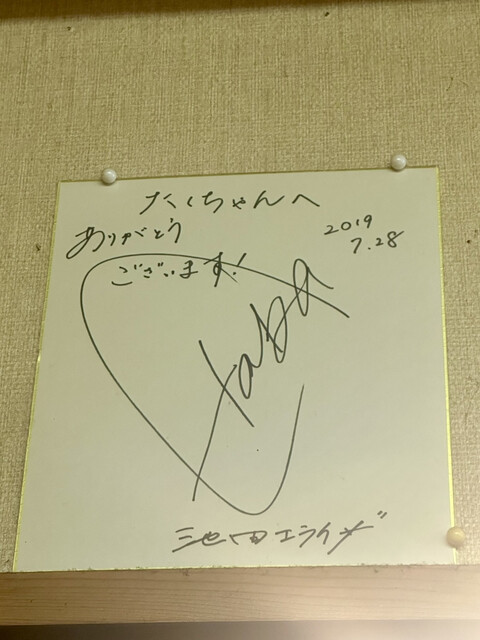 たくちゃんへ
ありがとう
ございます!
2019
7.28
池田エライザ